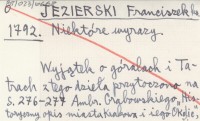 JEZIERSKI Franciszek ks.
1792. Niektóre wyrazy.
Wyjątek o góralach i Ta-
trach z tego dzieła przytoczono na
s. 276-277 Ambr. Grabowskiego, „Hi-
storyczny opis miasta Krakowa i jego okolic,